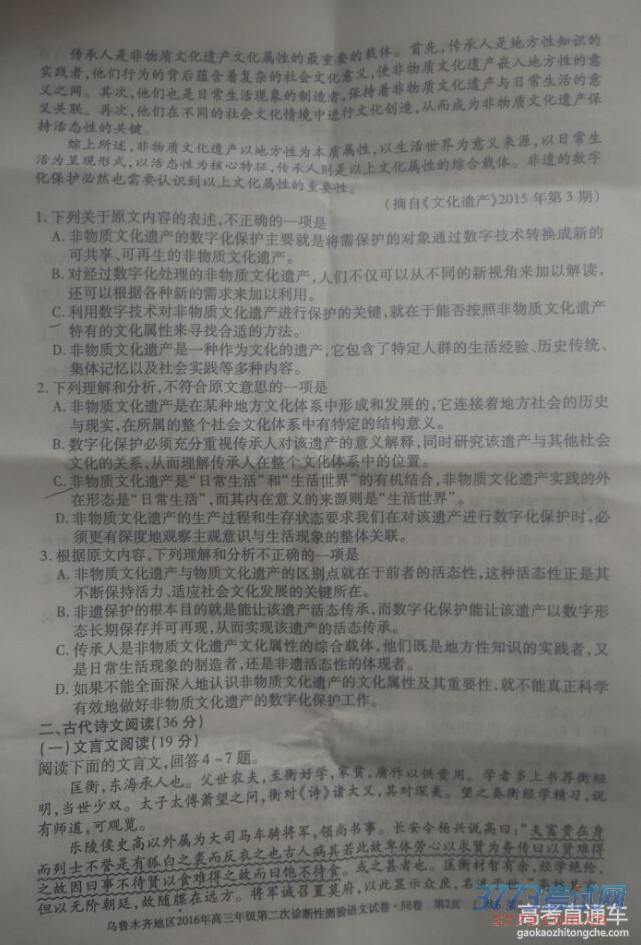 传承人是非物质文化遗产文化属性的最重要的载体。首先,传承人是地方性知识的
实践者,他们行为的背后蕴含着复杂的社会文化意义,使非物质文化遗产嵌入地方性的意
义之网。其次,他们也是日常生活现象的制造者,保持着非物质文化遗产与日常生活的意
义关联。再次,他们在不同的社会文化情境中进行文化创造,从而成为非物质文化遗产保
持活态性的关键。
综上所述,非物质文化遗产以地方性为本质属性,以生活世界为意义来源,以日常生
活为呈现形式,以活态性为核心特征,传承人则是以上文化属性的综合载体。非遗的数字
化保护必然也需要认识到以上文化属性的重要性。
(摘自《文化遗产》2015年第3期)
1. 下列关于原文内容的表述,不正确的一项是
A. 非物质文化遗产的数字化保护主要就是将需保护的对象通过数字技术转换成新的
可共享、可再生的非物质文化遗产。
B. 对经过数字化处理的非物质文化遗产,人们不仅可以从不同的新视角来加以解读,
还可以根据各种新的需求来加以利用。
C. 利用数字技术对非物质文化遗产进行保护的关键,就在于能否按照非物质文化遗产
特有的文化属性来寻找合适的方法。
D. 非物质文化遗产是一种作为文化的遗产,它包含了特定人群的生活经验、历史传统、
集体记忆以及社会实践等多种内容。
2. 下列理解和分析,不符合原文意思的一项是
A. 非物质文化遗产是在某种地方文化体系中形成和发展的,它连接着地方社会的历史
与现实,在所属的整个社会文化体系中有特定的结构意义。
B. 数字化保护必须充分重视传承人对该遗产的意义解释,同时研究该遗产与其他社会
文化的关系,从而理解传承人在整个文化体系中的位置。
C. 非物质文化遗产是“日常生活”和“生活世界”的有机结合,非物质文化遗产实践的外
在形态是“日常生活”,而其内在意义的来源则是“生活世界”。
D. 非物质文化遗产的生产过程和生存状态要求我们在对该遗产进行数字化保护时,必
须更有深度地观察主观意识与生活现象的整体关联。
3. 根据原文内容,下列理解和分析不正确的一项是
A. 非物质文化遗产与物质文化遗产的区别点就在于前者的活态性,这种活态性正是其
不断保持活力、适应社会文化发展的关键所在。
B. 非遗保护的根本目的就是能让该遗产活态传承,而数字化保护能让该遗产以数字形
态长期保存并可再现,从而实现该遗产的活态传承。
C. 传承人是非物质文化遗产文化属性的综合载体,他们既是地方性知识的实践者,又
是日常生活现象的制造者,还是非遗活态性的体现者。
D. 如果不能全面深入地认识非物质文化遗产的文化属性及其重要性,就不能真正科学
有效地做好非物质文化遗产的数字化保护工作。
二、古代诗文阅读(36分)
(一)文言文阅读(19分)
阅读下面的文言文,回答4-7题。
匡衡,东海承人也。父世农夫,至衡好学,家贫,庸作以供资用。学者多上书荐衡经
明,当世少双。太子太傅萧望之问,衡对《诗》诸大义,其对深美。望之奏衡经学精习,说
有师道,可观览。
乐陵侯史高以外属为大司马车骑将军,领尚书事。长安令杨兴说高曰:“夫富贵在身
而列士不誉是有狐白之裘而反衣之也古人病其若此故卑体劳心以求贤为务传曰以贤难得
之故因曰事不待贤以食难得之故而曰饱不待食。或之甚者也。匡衡材智有余,经学绝伦,
但以无阶朝廷,故随牒在远方。将军诚召置莫府,以此显示众庶,名流于世
乌鲁木齐地区2016年高三年级第二次诊断性测验语文试卷·问卷 第2页
3773考试网
高考直通车
gaokaozhitongche.com